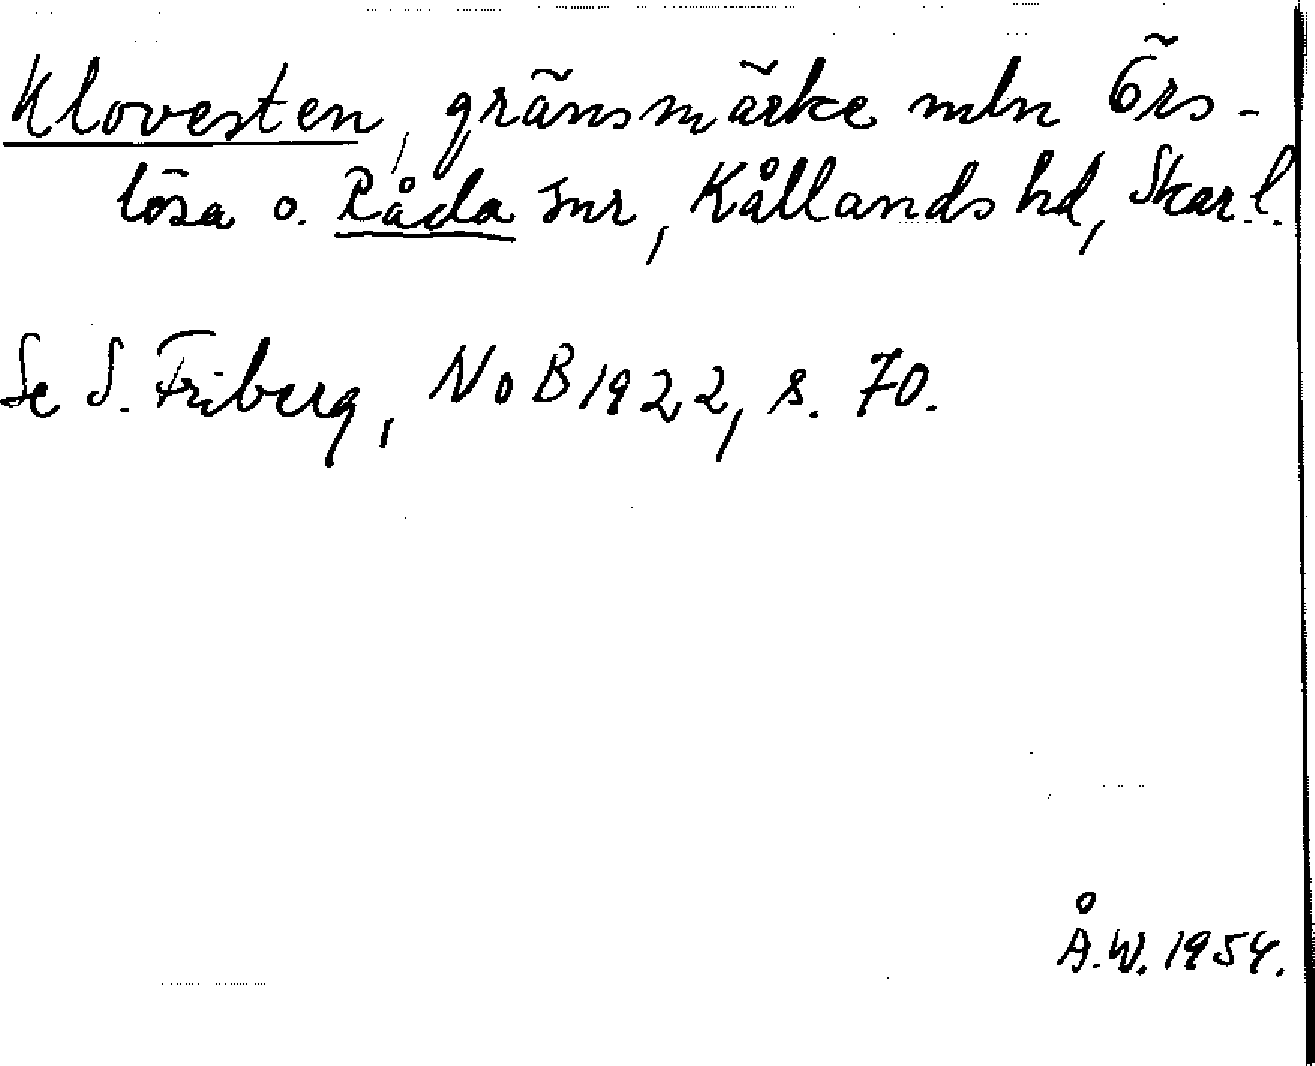 Klovesten, gränsmärke mln Örs-
lösa o. Råda snr, Kållands hd, Skar. l.
Se S. Friberg, NoB 1922, s. 70.
Å.W. 1954.